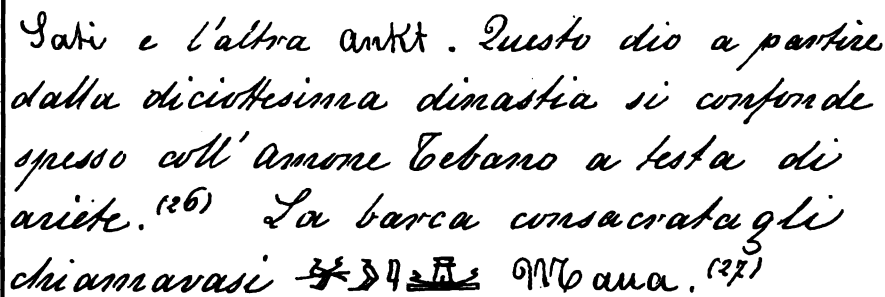 Sati e l'altra Ankt. Questo dio a partire
dalla diciottesima dinastia si confonde
spesso coll'Amone Tebano a testa di
ariete. (26) La barca consacratagli
chiamavasi Maua. (27)